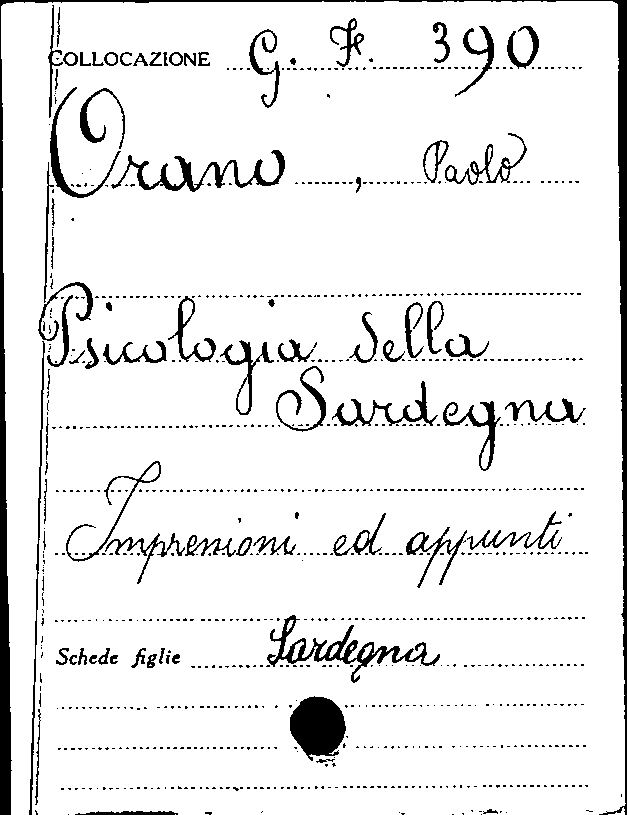 COLLOCAZIONE G. F. 390
Orano, Paolo
Psicologia della
Sardegna
Impressioni ed appunti
Schede figlie Sardegna